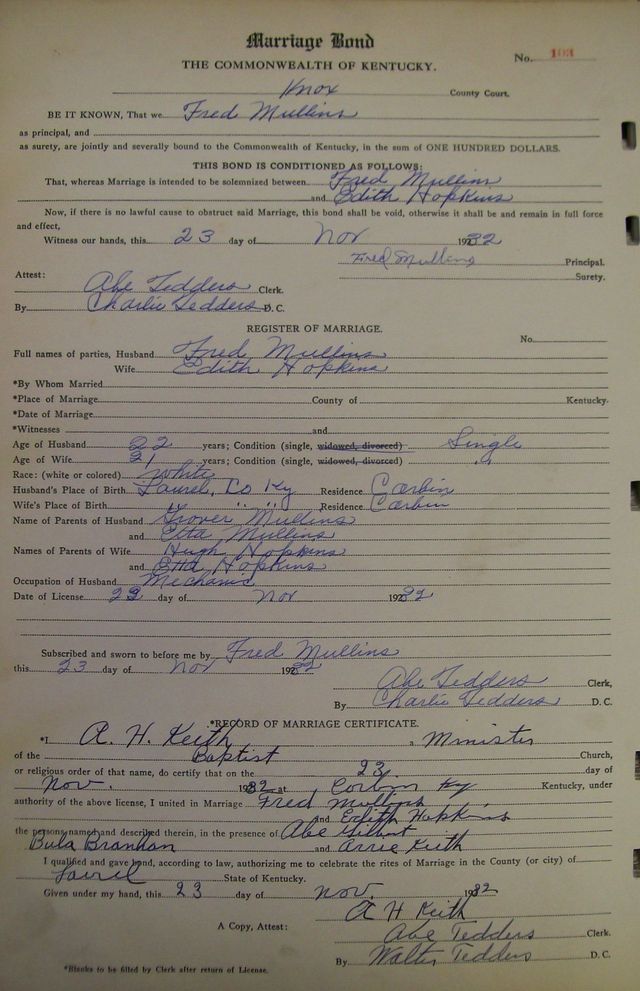 Marriage Bond
THE COMMONWEALTH OF KENTUCKY.
No. 103
Knox County Court.
BE IT KNOWN, That we Fred Mullins
as principal, and
as surety, are jointly and severally bound to the Commonwealth of Kentucky, in the sum of ONE HUNDRED DOLLARS.
THIS BOND IS CONDITIONED AS FOLLOWS:
That, whereas Marriage is intended to be solemnized between Fred Mullins
and Edith Hopkins
Now, if there is no lawful cause to obstruct said Marriage, this bond shall be void, otherwise it shall be and remain in full force
and effect,
Witness our hands, this 23 day of Nov 1932
Fred Mullins Principal.
Surety.
Attest:
Abe Tedders Clerk.
By Charlie Tedders D. C.
REGISTER OF MARRIAGE.
No.
Full names of parties, Husband Fred Mullins
Wife Edith Hopkins
*By Whom Married
*Place of Marriage County of Kentucky
*Date of Marriage
*Witnesses and
Age of Husband 22 years; Condition (single, widowed, divorced) Single
Age of Wife 21 years; Condition (single, widowed, divorced) " "
Race: (white or colored) White
Husband's Place of Birth Laurel Co Ky Residence Corbin
Wife's Place of Birth " " " Residence Corbin
Name of Parents of Husband Grover Mullins
and Etta Mullins
Names of Parents of Wife Hugh Hopkins
and Etta Hopkins
Occupation of Husband Mechanic
Date of License 23 day of Nov 1932
Subscribed and sworn to before me by Fred Mullins
this 23 day of Nov 1932
Abe Tedders Clerk,
By Charlie Tedders D. C.
*RECORD OF MARRIAGE CERTIFICATE.
*I A. H. Keith, a Minister
of the Baptist Church,
or religious order of that name, do certify that on the 23. day of
Nov. 1932 at Corbin Ky Kentucky, under
authority of the above license, I united in Marriage Fred Mullins
and Edith Hopkins
the persons named and described therein, in the presence of Abe Gilbert
Bula Branhan and Arrie Keith
I qualified and gave bond, according to law, authorizing me to celebrate the rites of Marriage in the County (or city) of
Laurel State of Kentucky.
Given under my hand, this 23 day of Nov. 1932
A H Keith
A Copy, Attest: Abe Tedders Clerk.
By Walter Tedders D. C.
*Blanks to be filled by Clerk after return of License.